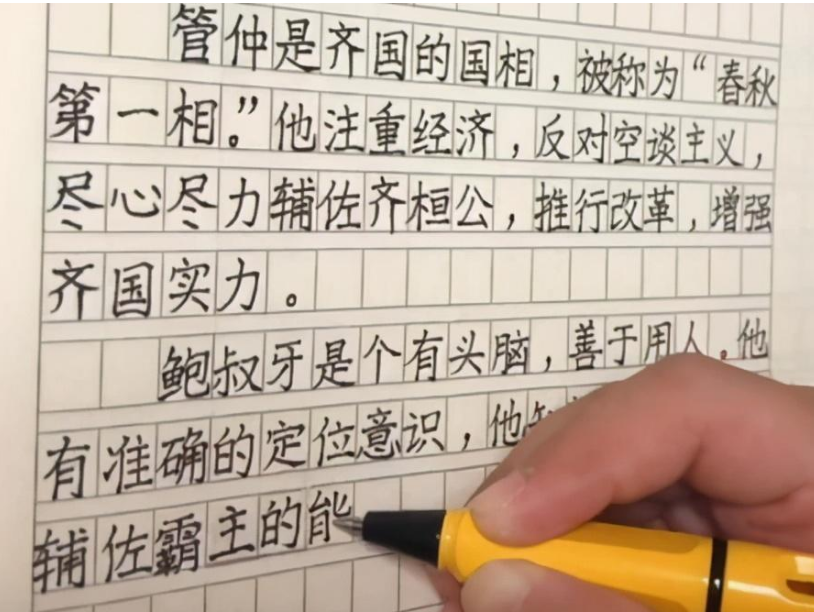 管仲是齐国的国相，被称为“春秋
第一相。”他注重经济，反对空谈主义，
尽心尽力辅佐齐桓公，推行改革，增强
齐国实力。
鲍叔牙是个有头脑，善于用人。他
有准确的定位意识，他
辅佐霸主的能